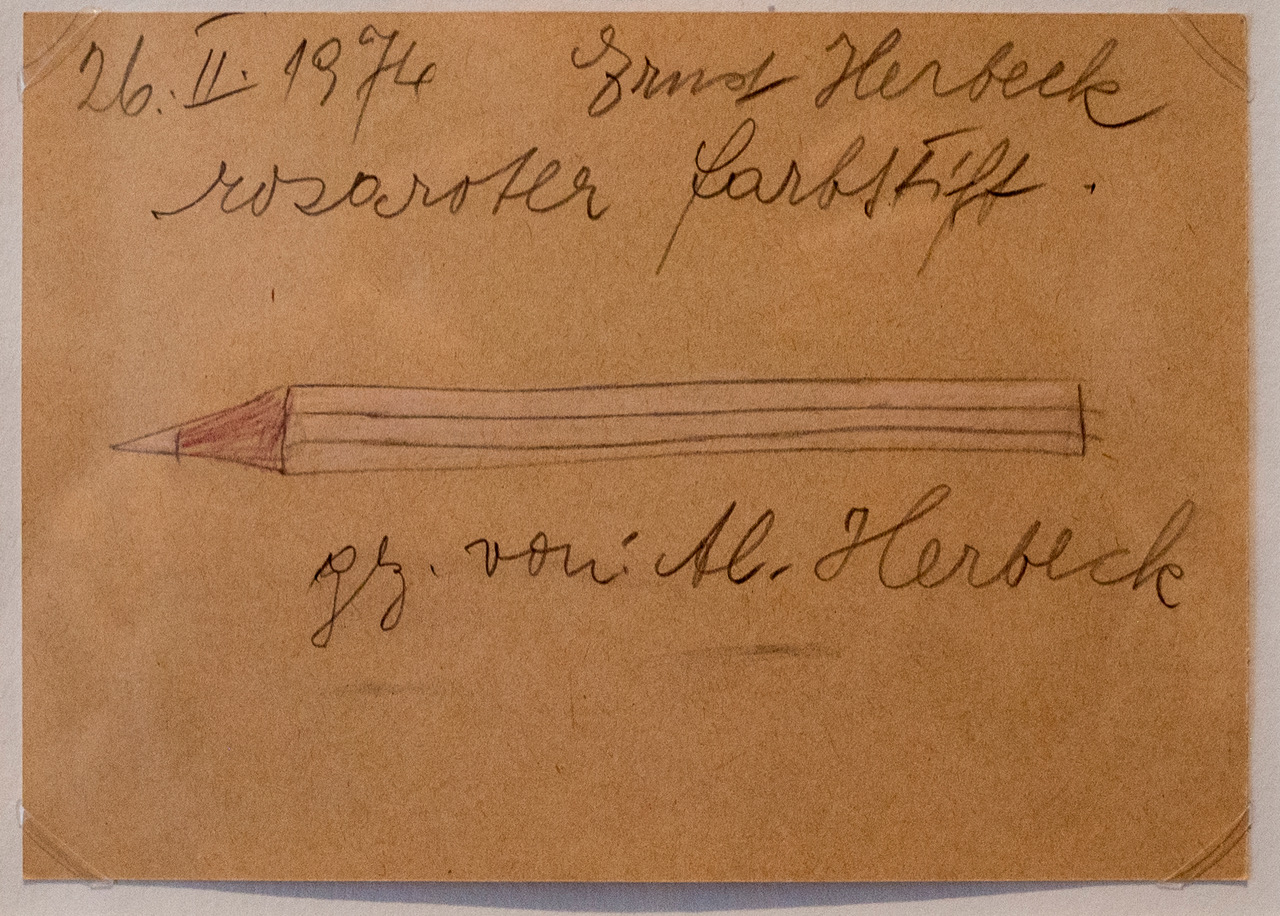 26. II. 1974 Ernst Herbeck
rosaroter farbstift.
gz. von: Al. Herbeck